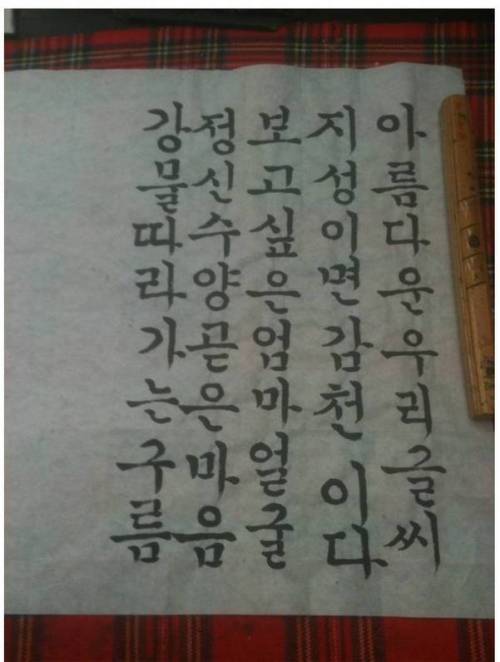 아름다운우리글씨
지성이면감천이다
보고싶은엄마얼굴
정신수양곧은마음
강물따라가는구름